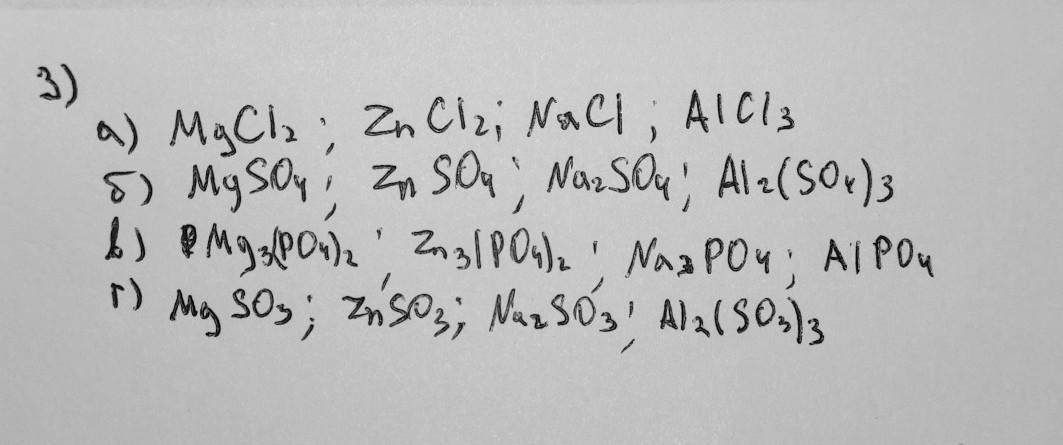 3)
а) MgCl₂; ZnCl₂; NaCl; AlCl₃
б) MgSO₄; ZnSO₄; Na₂SO₄; Al₂(SO₄)₃
в) Mg₃(PO₄)₂; Zn₃(PO₄)₂; Na₃PO₄; AlPO₄
г) MgSO₃; ZnSO₃; Na₂SO₃; Al₂(SO₃)₃